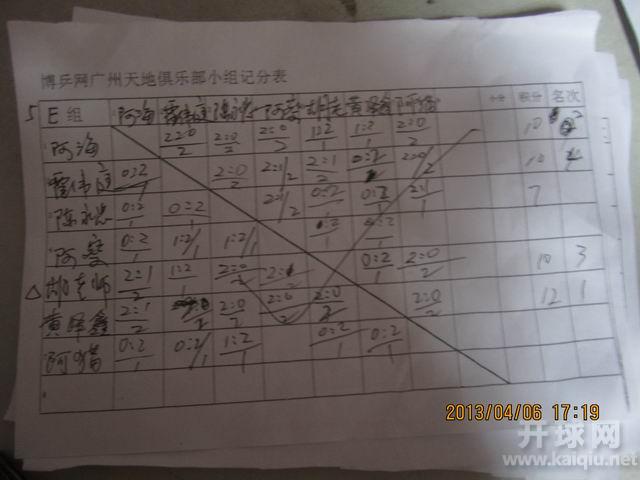 博乒网广州天地俱乐部小组记分表
5 E 组 阿海 陈永 阿雯 胡老 黄泽鑫 阿猫 积分 名次
阿海 2:0/2 2:0/2 2:0/2 1:2/1 1:2/1 2:0/2 10 2
雷伟 0:2/1 2:0/2 2:1/2 2:1/2 0:2 2:0/2 10 4
陈永忠 0:2/1 0:2/1 2:1/2 0:2/1 0:2/1 2:1/1 7
阿雯 0:2/1 1:2/1 1:2/1 0:2/1 0:2/1
△ 胡老师 2:1/2 1:2/1 2:0/2 2:0/2 0:2/1 2:0/2 10 3
黄泽鑫 2:1/2 2:0/2 2:0/2 2:0/2 2:0/2 12 1
阿猫 0:2/1 0:2/1 1:2/2 0:2/1 0:2/1
2013/04/06 17:19
开球网
www.kaiqiu.net